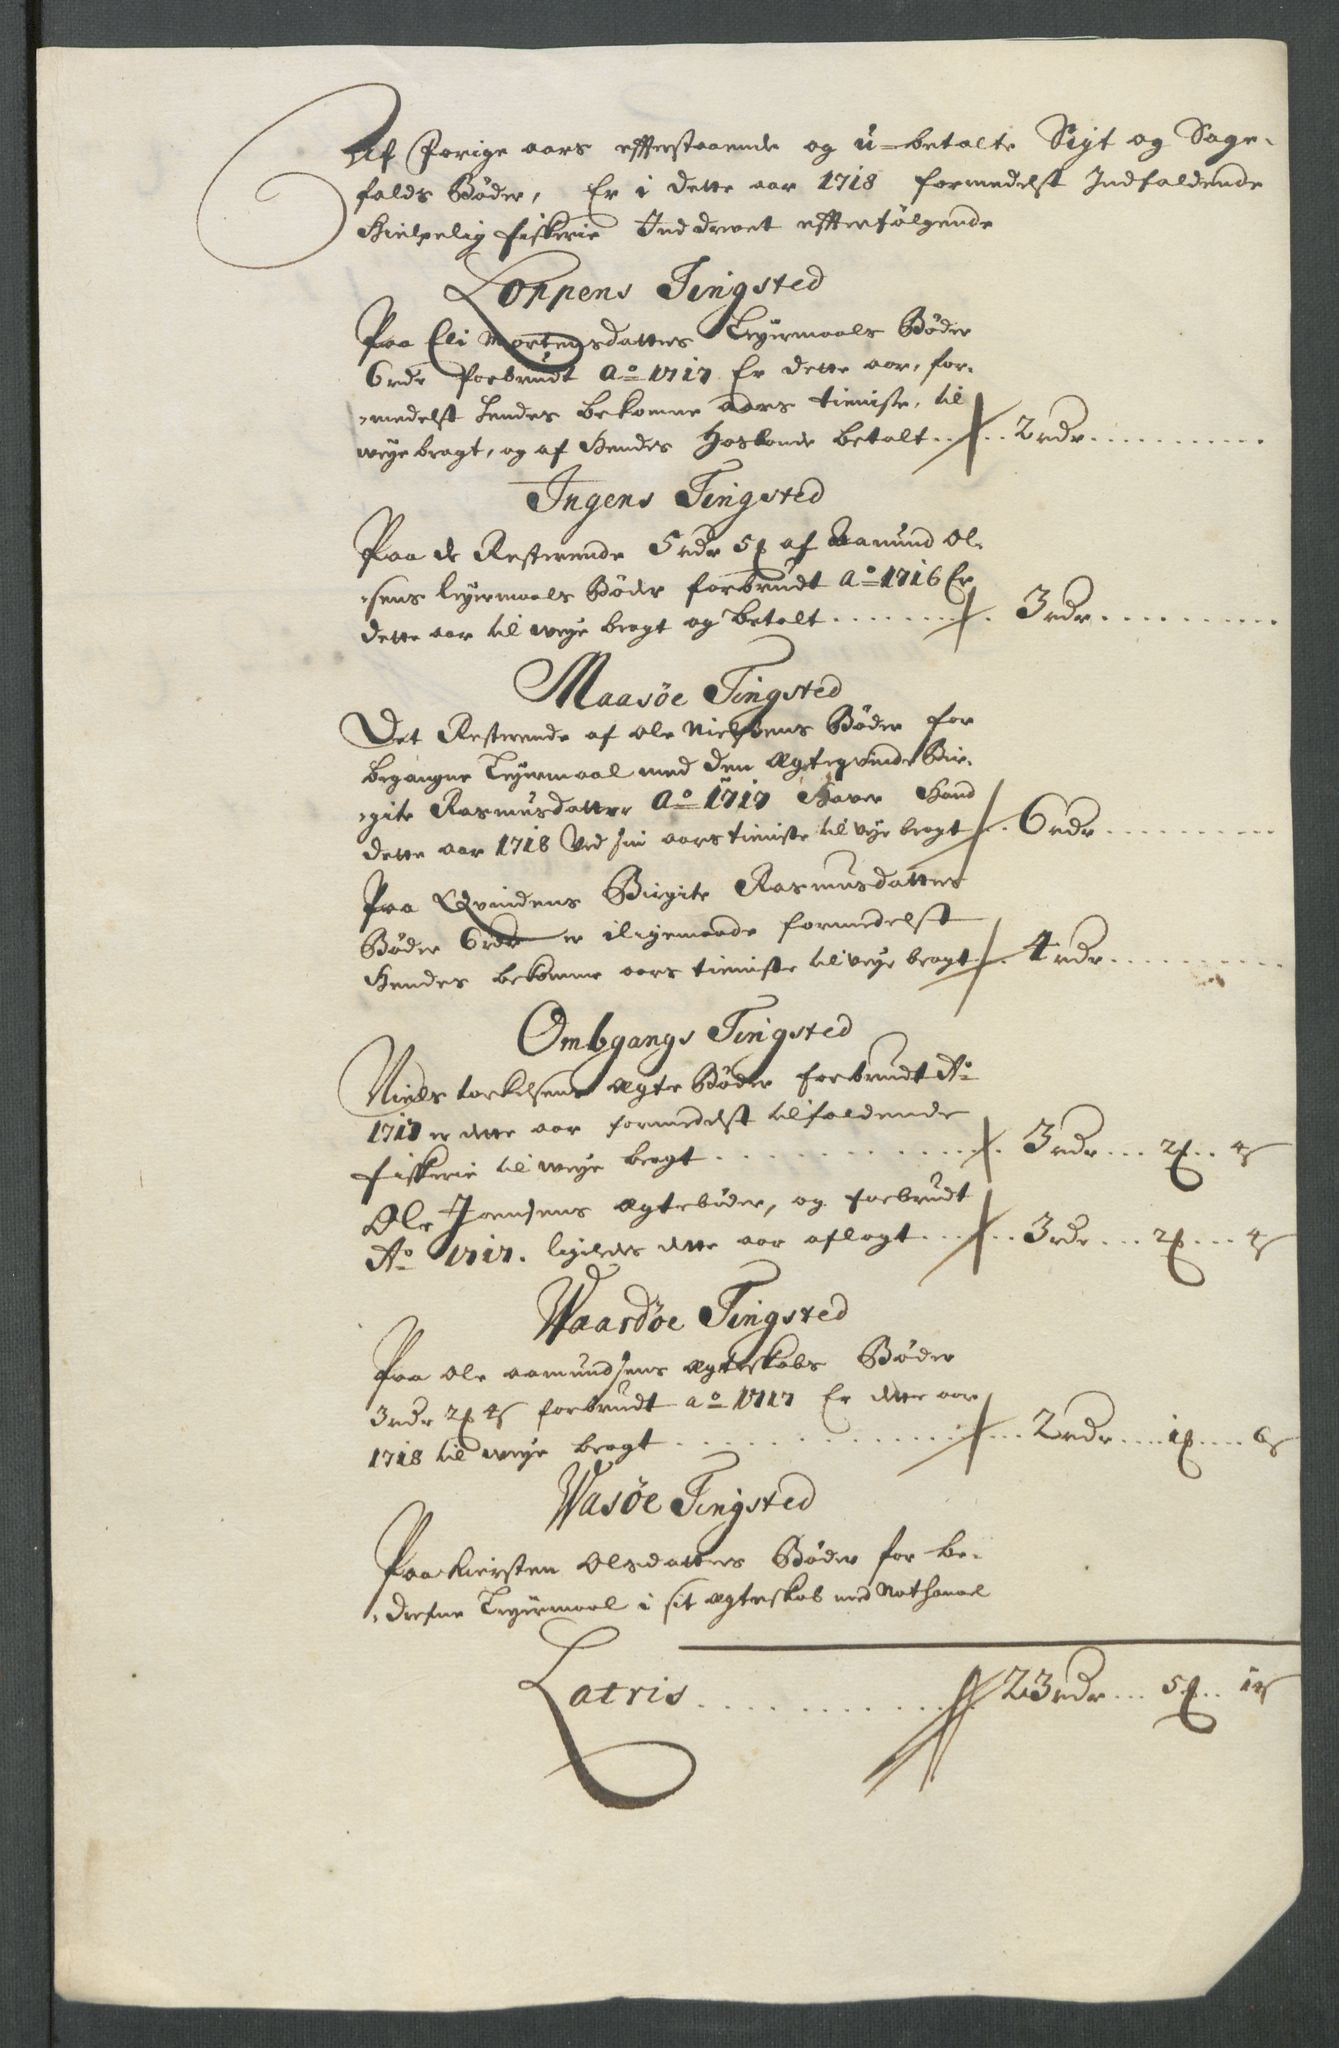 Af Forige aars efterstaaende og u-betalte Sigt og Sage-
falds Bøder, Er i dette aar 1718 formedelst Indfaldende
Hielpelig fiskerie Inddrevet efterfølgende
Loppens Tingsted
Paa Eli Mortensdatters Leyermaals Bøder
6 rdr forbrudt Ao 1717 Er dette aar, for-
medelst hendes bekomne aars tieniste, til
weye bragt, og af hendes Hosbonde betalt . . . 2 rdr
Ingens Tingsted
Paa de Resterende 5 rdr 5 ß af Aamund Ol-
sens Leyermaals Bøder forbrudt Ao 1716 Er
dette aar til weye bragt og betalt . . . 3 rdr
Maasöe Tingsted
Det Resterende af Ole Nielsens Bøder for
begangne Leyermaal med den Ægteqvinde Bir-
gite Rasmusdatter Ao 1717 Haver Hand
dette aar 1718 Ved sin aars tieniste til veye bragt . . 6 rdr
Paa Qvindens Birgite Rasmusdatters
Bøder 6 rdr er iligemaade formedelst
Hendes bekomne aars tieniste til veye bragt . . 4 rdr
Ombgangs Tingsted
Niels torkelsens Ægte Bøder forbrudt Ao
1717 er dette aar formedelst tilfaldende
fiskerie til weye bragt . . . 3 rdr . . 2 ß . . 4 s
Ole Joensens Ægtebøder, og forbrudt
Ao 1717. ligeledes dette aar aflagt . . . 3 rdr . . 2 ß . . 4 s
Waardöe Tingsted
Paa Ole Aamundsens Ægteskabs Bøder
3 rdr 2 ß 4 s forbrudt ao 1717 Er dette aar
1718 til weye bragt . . . 2 rdr . . 1 ß . . 6 s
Wasöe Tingsted
Paa Kiersten Olsdatters Bøder for be-
drefne Leyermaal i sit Ægteskab med Nathanael
Latris . . . 23 rdr . . 5 ß . . 14 s